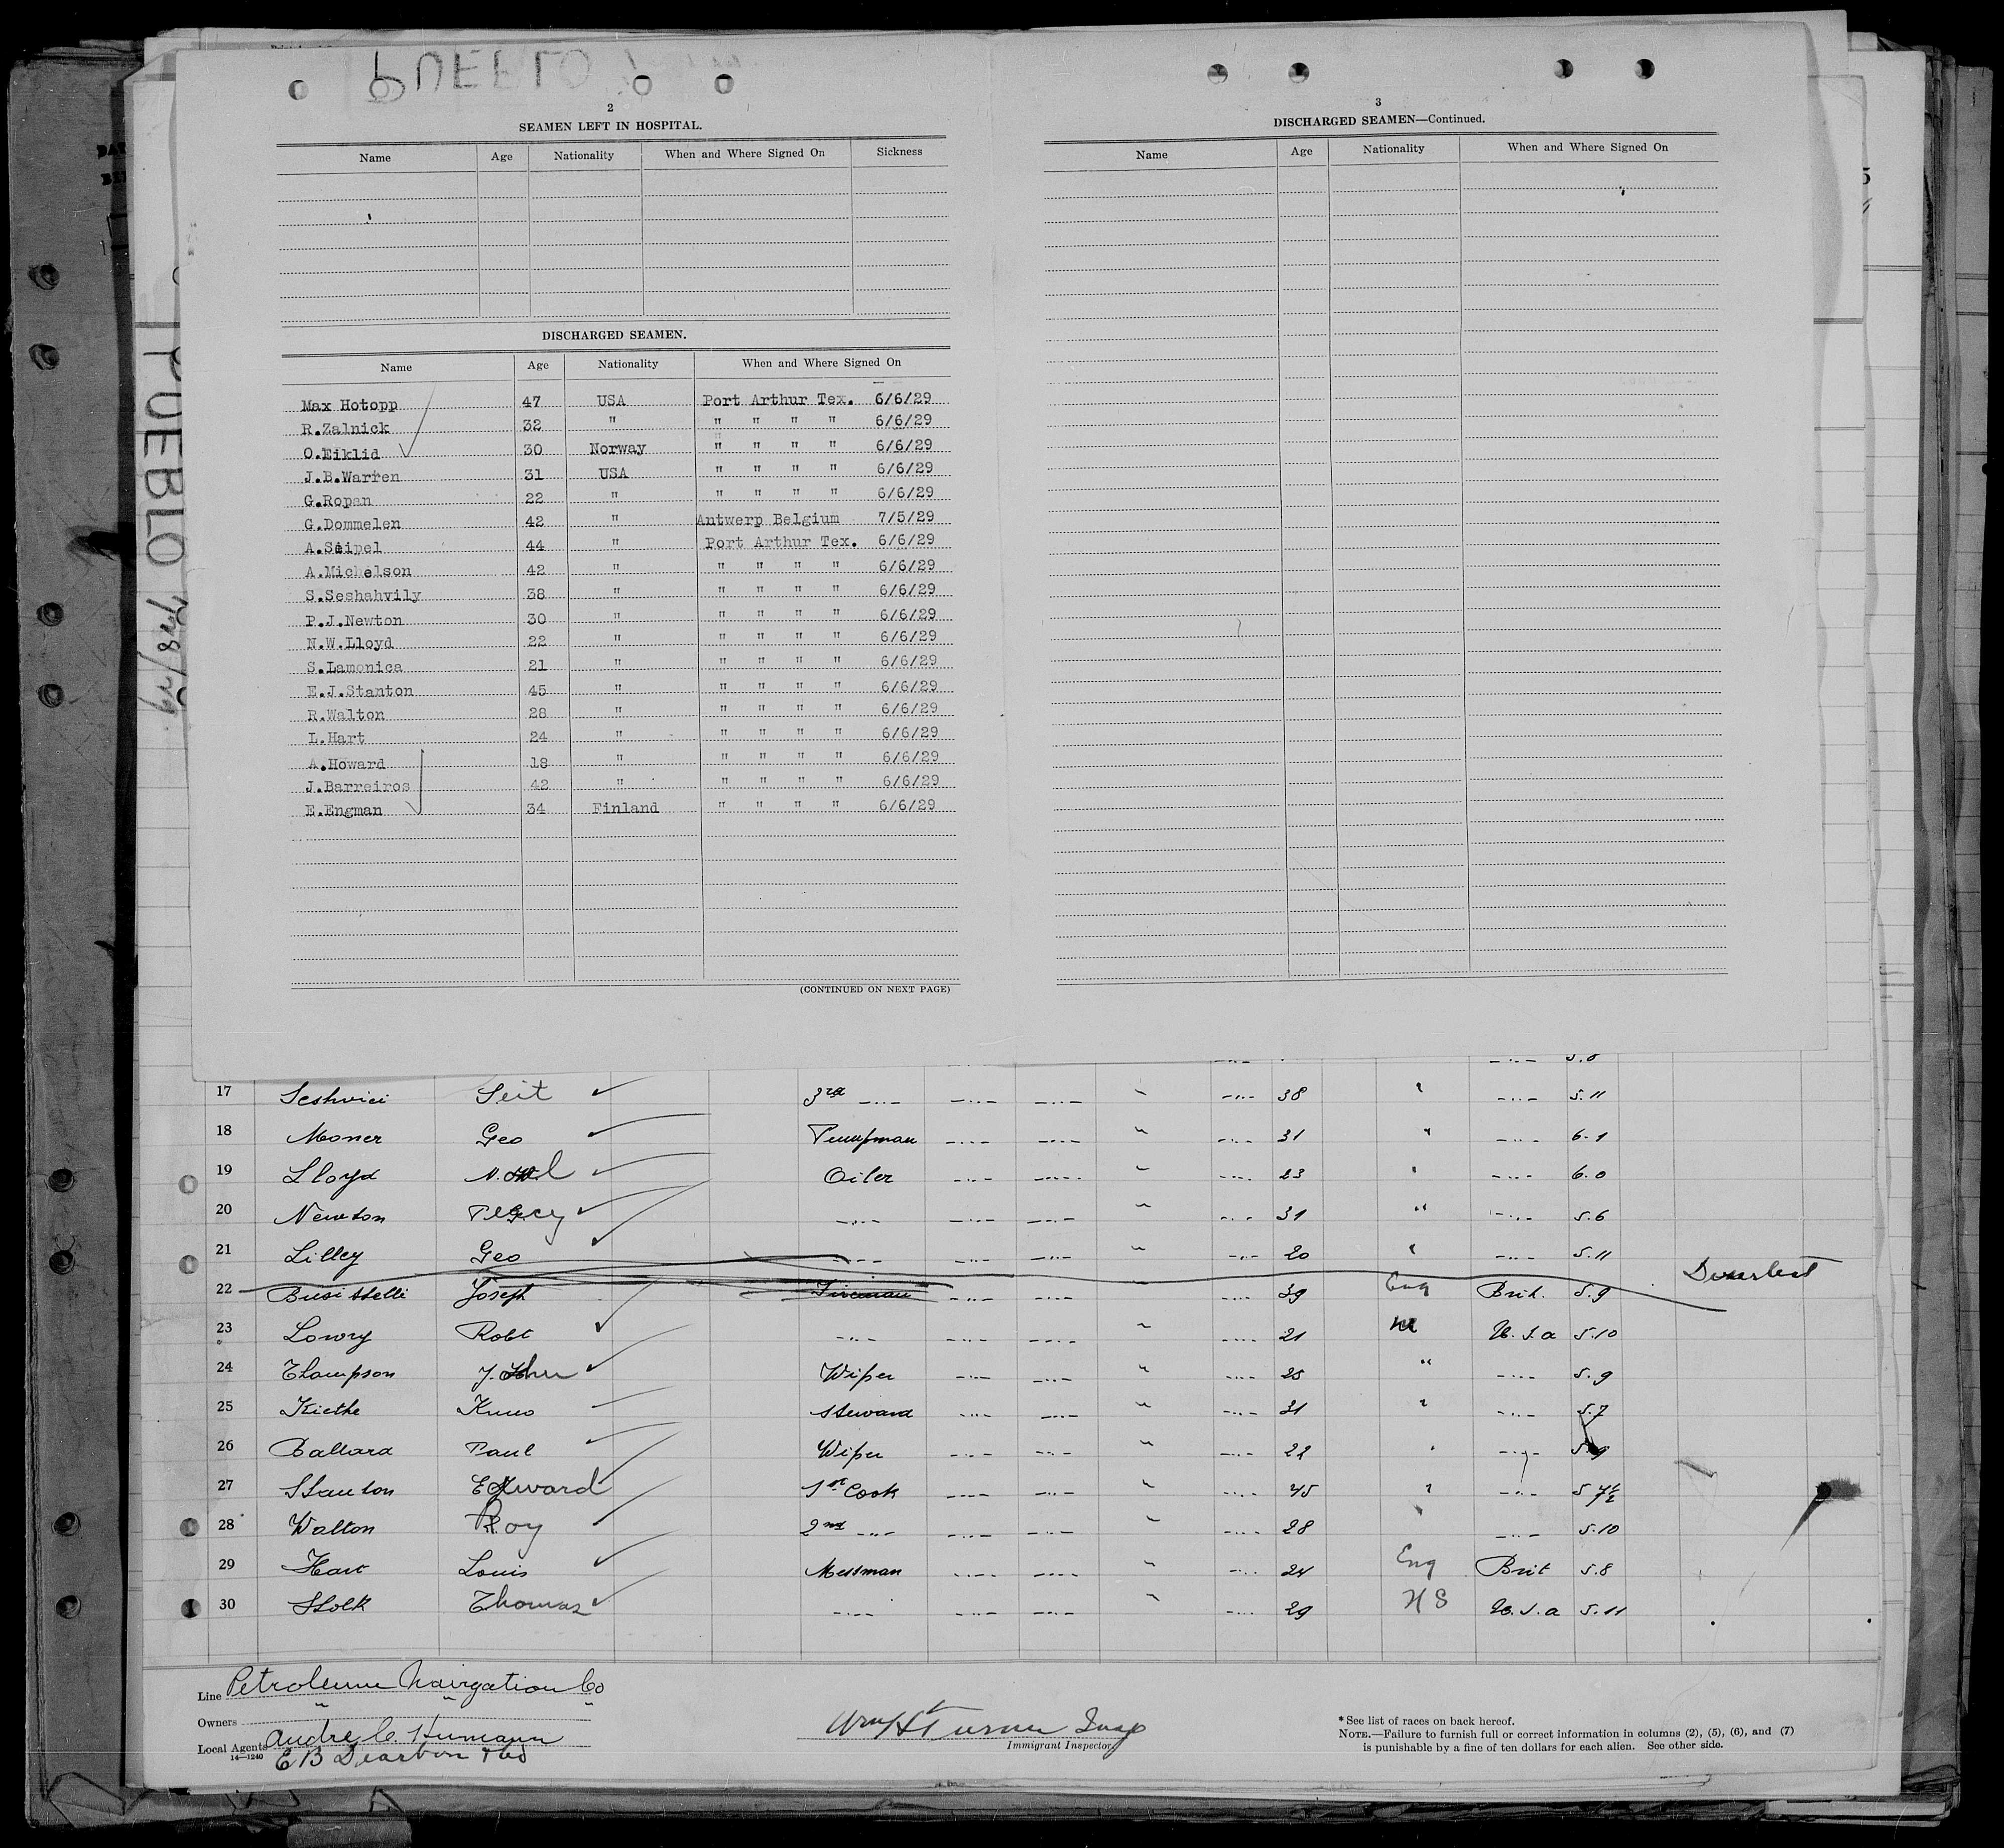 PUEBLO
2
SEAMEN LEFT IN HOSPITAL.
Name Age Nationality When and Where Signed On Sickness
DISCHARGED SEAMEN.
Name Age Nationality When and Where Signed On
Max Hotopp 47 USA Port Arthur Tex. 6/6/29
R.Zalnick 32 " " " " " 6/6/29
O.Eiklid 30 Norway " " " " 6/6/29
J.B.Warren 31 USA " " " " 6/6/29
G.Ropan 22 " " " " " 6/6/29
G.Dommelen 42 " Antwerp Belgium 7/5/29
A.Seipel 44 " Port Arthur Tex. 6/6/29
A.Michelson 42 " " " " " 6/6/29
S.Seshahvily 38 " " " " " 6/6/29
P.J.Newton 30 " " " " " 6/6/29
N.W.Lloyd 22 " " " " " 6/6/29
S.Lamonica 21 " " " " " 6/6/29
E.J.Stanton 45 " " " " " 6/6/29
R.Walton 28 " " " " " 6/6/29
L.Hart 24 " " " " " 6/6/29
A.Howard 18 " " " " " 6/6/29
J.Barreiros 42 " " " " " 6/6/29
E.Engman 34 Finland " " " " 6/6/29
(CONTINUED ON NEXT PAGE)
3
DISCHARGED SEAMEN—Continued.
Name Age Nationality When and Where Signed On
17 Seit 3rd 38 " 5.11
18 Moner Geo Pumpman 31 " 6.1
19 Lloyd Oiler 23 " 6.0
20 Newton Percy 31 " 5.6
21 Lilley Geo 20 " 5.11
22 Joseph Fireman 39 Eng Brit. 5.9
23 Lowry Robt 21 U.S.a 5.10
24 Thompson J. John Wiper 25 " 5.9
25 Kiethe Kuno Steward 31 " 5.7
26 Ballard Paul Wiper 22 " 5.9
27 Stanton Edward 1st Cook 45 " 5 7½
28 Walton Roy 2nd 28 " 5.10
29 Hart Louis Messman 24 Eng Brit 5.8
30 Stolk Thomas 29 U.S.a 5.11
Line Petroleum Navigation Co
Owners " " "
Local Agents Andre C. Humann
14—1240 E B Dearborn
Wm H Turner Insp
Immigrant Inspector.
* See list of races on back hereof.
NOTE.—Failure to furnish full or correct information in columns (2), (5), (6), and (7)
is punishable by a fine of ten dollars for each alien. See other side.
PUEBLO